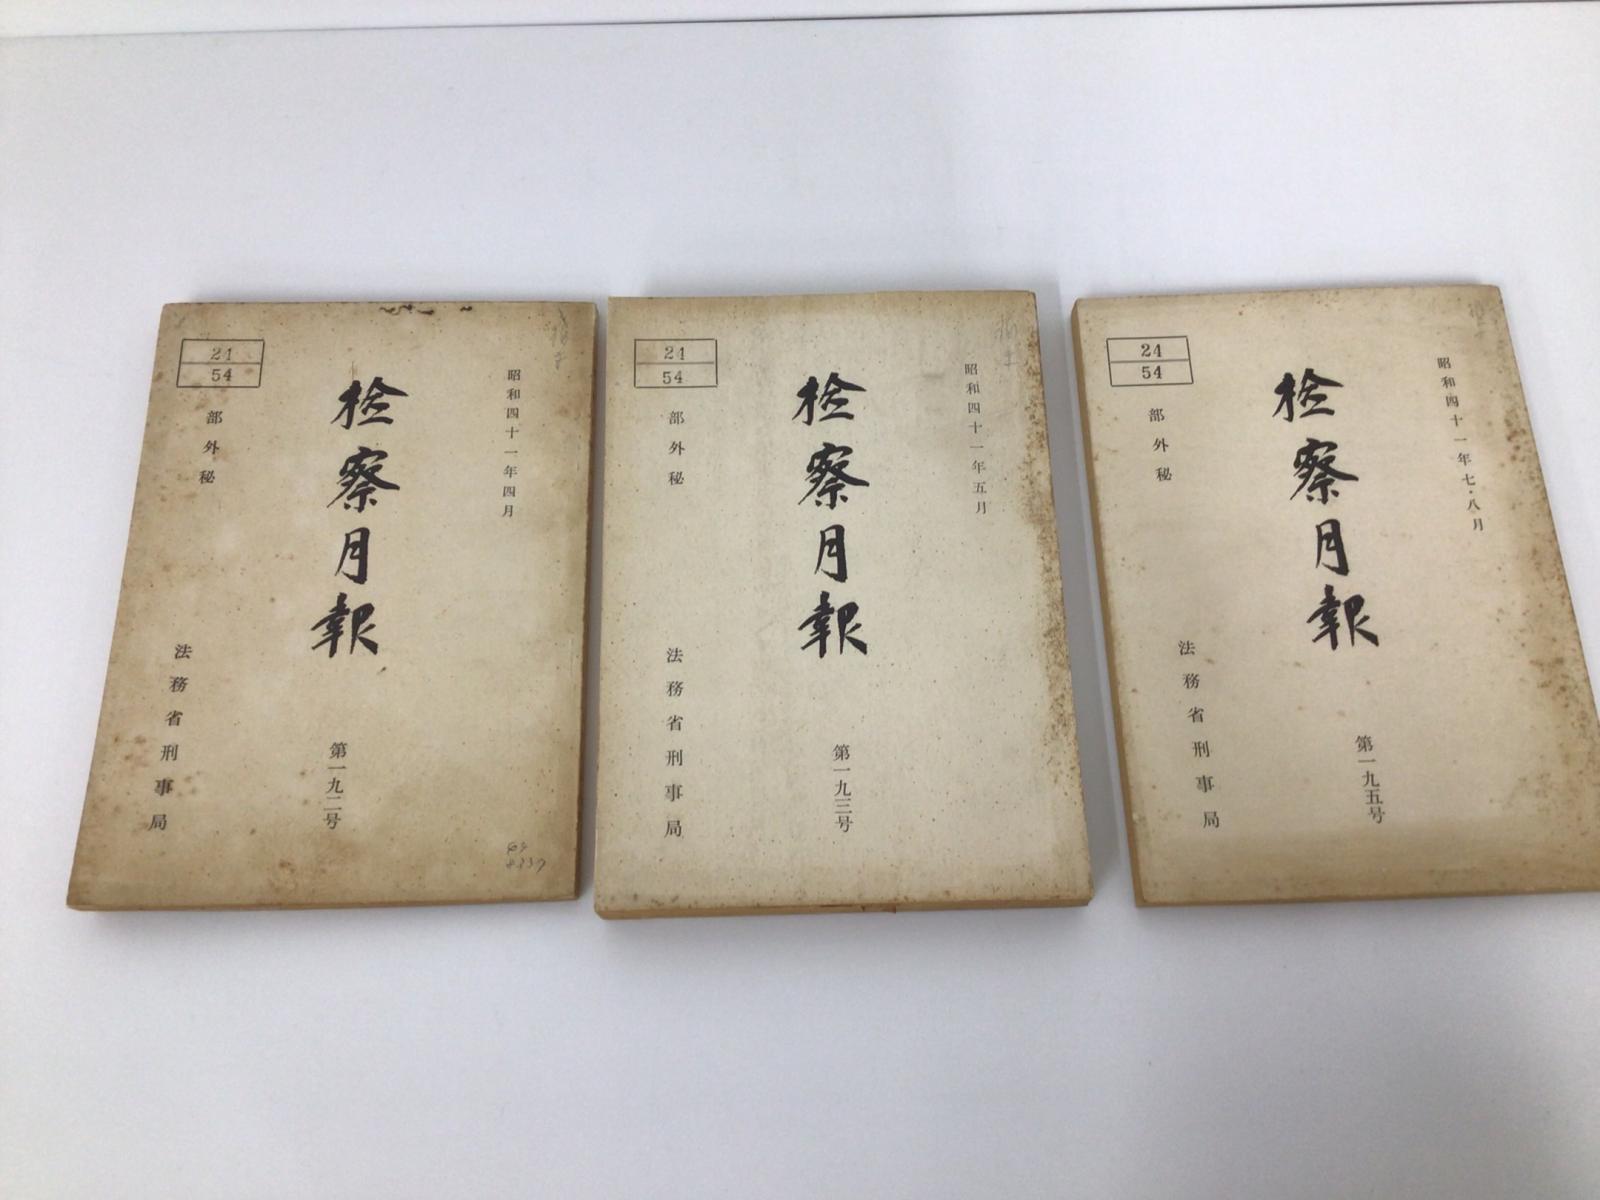 昭和四十一年四月
検察月報
第一九二号
24
54
部外秘
法務省刑事局
昭和四十一年五月
検察月報
第一九三号
24
54
部外秘
法務省刑事局
昭和四十一年七・八月
検察月報
第一九五号
24
54
部外秘
法務省刑事局